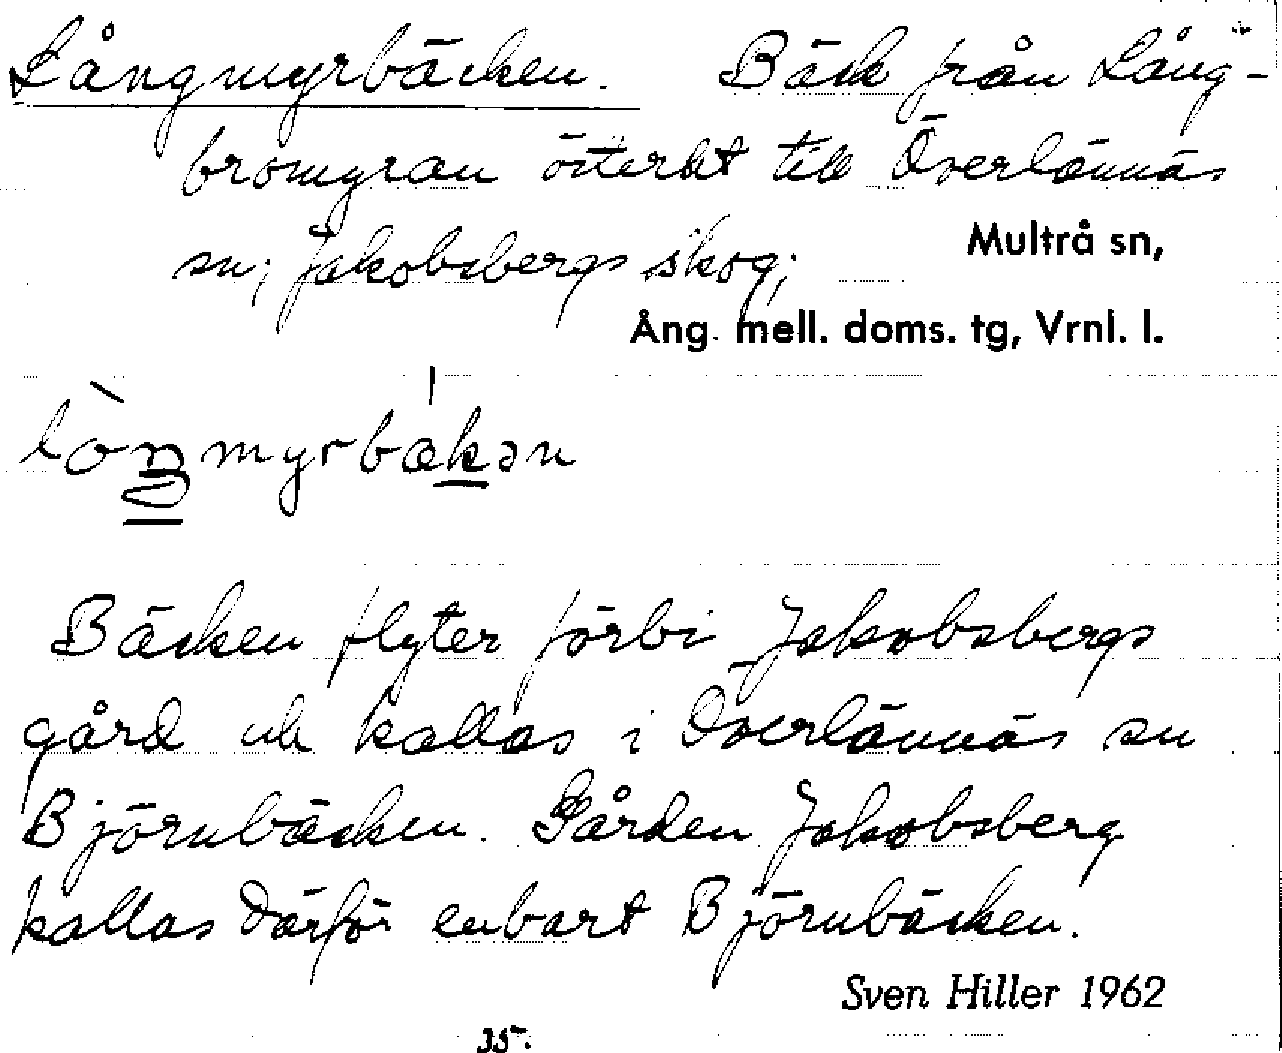 Långmyrbäcken. Bäck från Lång-
bromyran österut till Överlännäs
sn; Jakobsbergs skog;
Multrå sn,
Ång. mell. doms. tg, Vrnl. l.
lòŋmyrbækən
Bäcken flyter förbi Jakobsbergs
gård och kallas i Överlännäs sn
Björnbäcken. Gården Jakobsberg
kallas därför enbart Björnbäcken.
Sven Hiller 1962
35.